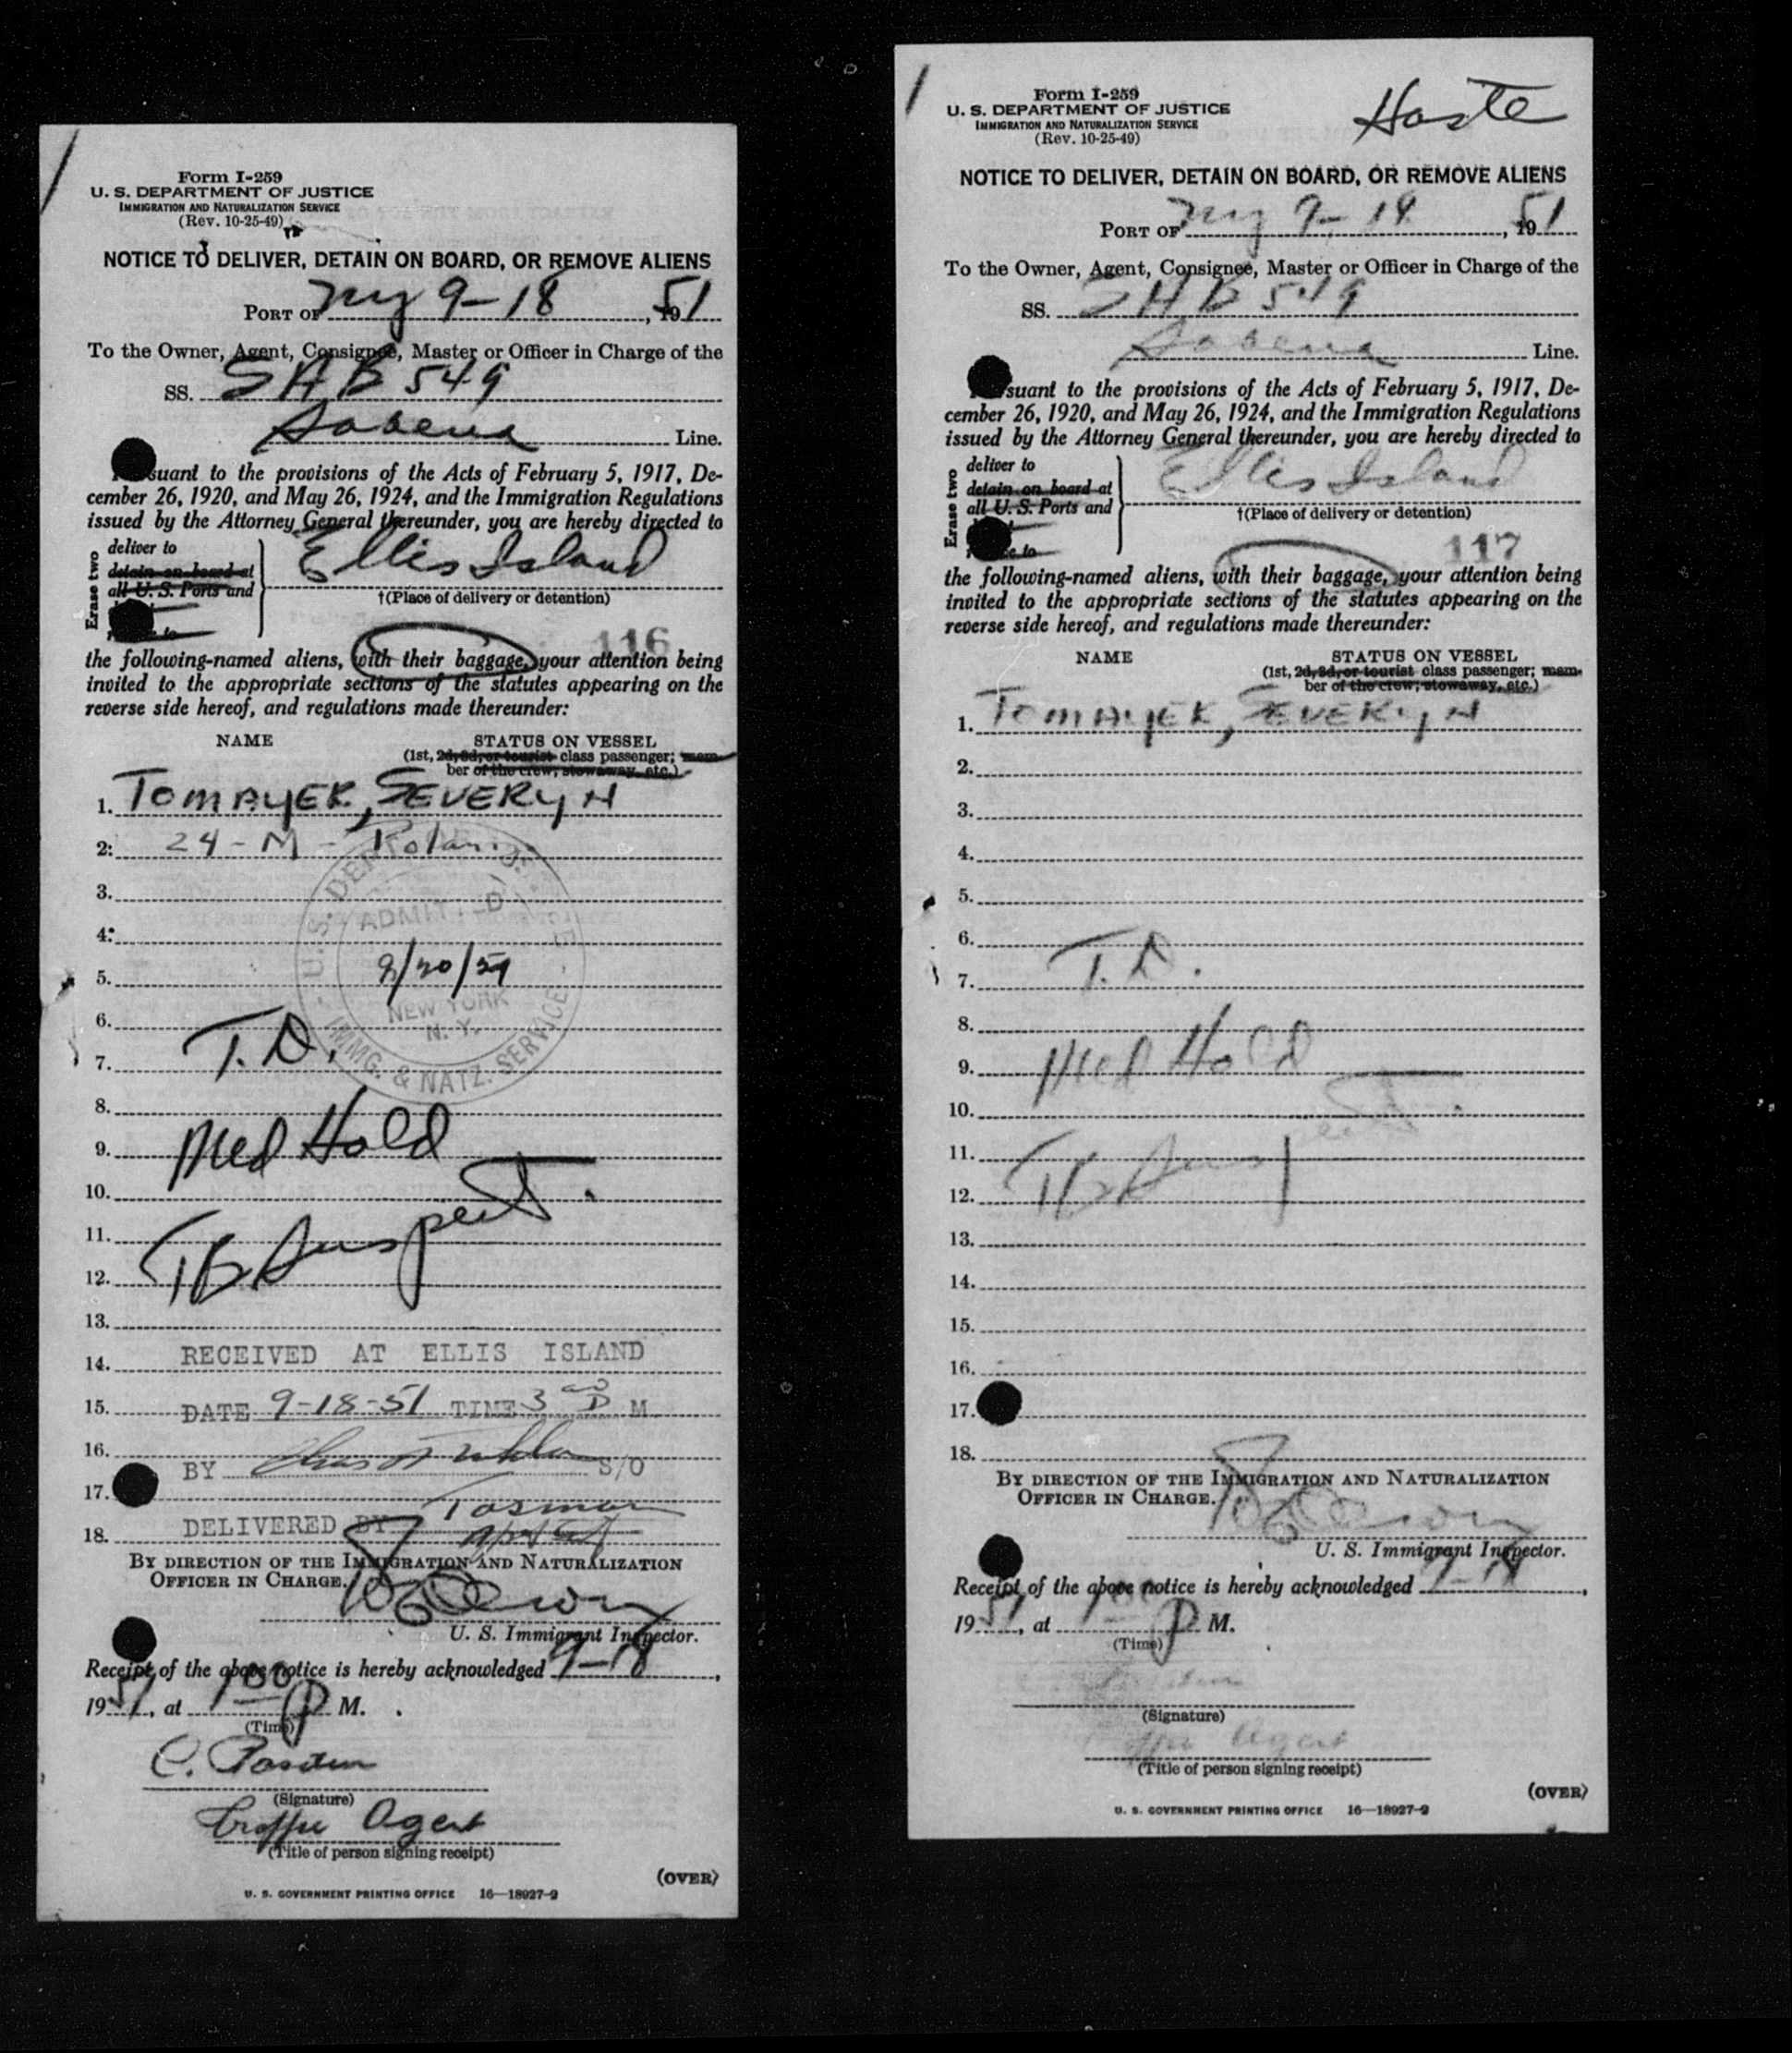 Form I-259
U. S. DEPARTMENT OF JUSTICE
IMMIGRATION AND NATURALIZATION SERVICE
(Rev. 10-25-49)
NOTICE TO DELIVER, DETAIN ON BOARD, OR REMOVE ALIENS
PORT OF NY 9-18, 1951
To the Owner, Agent, Consignee, Master or Officer in Charge of the
SS. SAB 549
Sabena Line.
suant to the provisions of the Acts of February 5, 1917, De-
cember 26, 1920, and May 26, 1924, and the Immigration Regulations
issued by the Attorney General thereunder, you are hereby directed to
Erase two
deliver to
detain on board at
all U. S. Ports and
Ellis Island
†(Place of delivery or detention)
116
the following-named aliens, with their baggage, your attention being
invited to the appropriate sections of the statutes appearing on the
reverse side hereof, and regulations made thereunder:
NAME STATUS ON VESSEL
(1st, 2d, 3d, or tourist class passenger; mem-
ber of the crew, stowaway, etc.)
1. TOMAYER, SEVERYN
2. 24 - M -
3.
4.
5.
6.
7. T.D.
8.
9. Med Hold
10.
11.
12. TB Suspect.
13.
14. RECEIVED AT ELLIS ISLAND
15. DATE 9-18-51 TIME 3 00 P M
16.
BY S/O
17.
18. DELIVERED BY
U. S. DEPT. OF
ADMITTED
9/20/51
NEW YORK
N. Y.
IMMG. & NATZ. SERVICE
BY DIRECTION OF THE IMMIGRATION AND NATURALIZATION
OFFICER IN CHARGE.
U. S. Immigrant Inspector.
Receipt of the above notice is hereby acknowledged 9-18,
1951, at 1 00 P M.
(Time)
C.
(Signature)
Agent
(Title of person signing receipt)
(OVER)
U. S. GOVERNMENT PRINTING OFFICE 16—18927-2
Form I-259
U. S. DEPARTMENT OF JUSTICE
IMMIGRATION AND NATURALIZATION SERVICE
(Rev. 10-25-49)
Haste
NOTICE TO DELIVER, DETAIN ON BOARD, OR REMOVE ALIENS
PORT OF NY 9-18, 1951
To the Owner, Agent, Consignee, Master or Officer in Charge of the
SS. SAB 549
Sabena Line.
suant to the provisions of the Acts of February 5, 1917, De-
cember 26, 1920, and May 26, 1924, and the Immigration Regulations
issued by the Attorney General thereunder, you are hereby directed to
Erase two
deliver to
detain on board at
all U. S. Ports and
Ellis Island
†(Place of delivery or detention)
117
the following-named aliens, with their baggage, your attention being
invited to the appropriate sections of the statutes appearing on the
reverse side hereof, and regulations made thereunder:
NAME STATUS ON VESSEL
(1st, 2d, 3d, or tourist class passenger; mem-
ber of the crew, stowaway, etc.)
1. TOMAYER, SEVERYN
2.
3.
4.
5.
6.
7. T.D.
8.
9. Med Hold
10.
11.
12. TB Suspect.
13.
14.
15.
16.
17.
18.
BY DIRECTION OF THE IMMIGRATION AND NATURALIZATION
OFFICER IN CHARGE.
U. S. Immigrant Inspector.
Receipt of the above notice is hereby acknowledged 9-18,
1951, at 1 00 P M.
(Time)
(Signature)
Agent
(Title of person signing receipt)
(OVER)
U. S. GOVERNMENT PRINTING OFFICE 16—18927-2